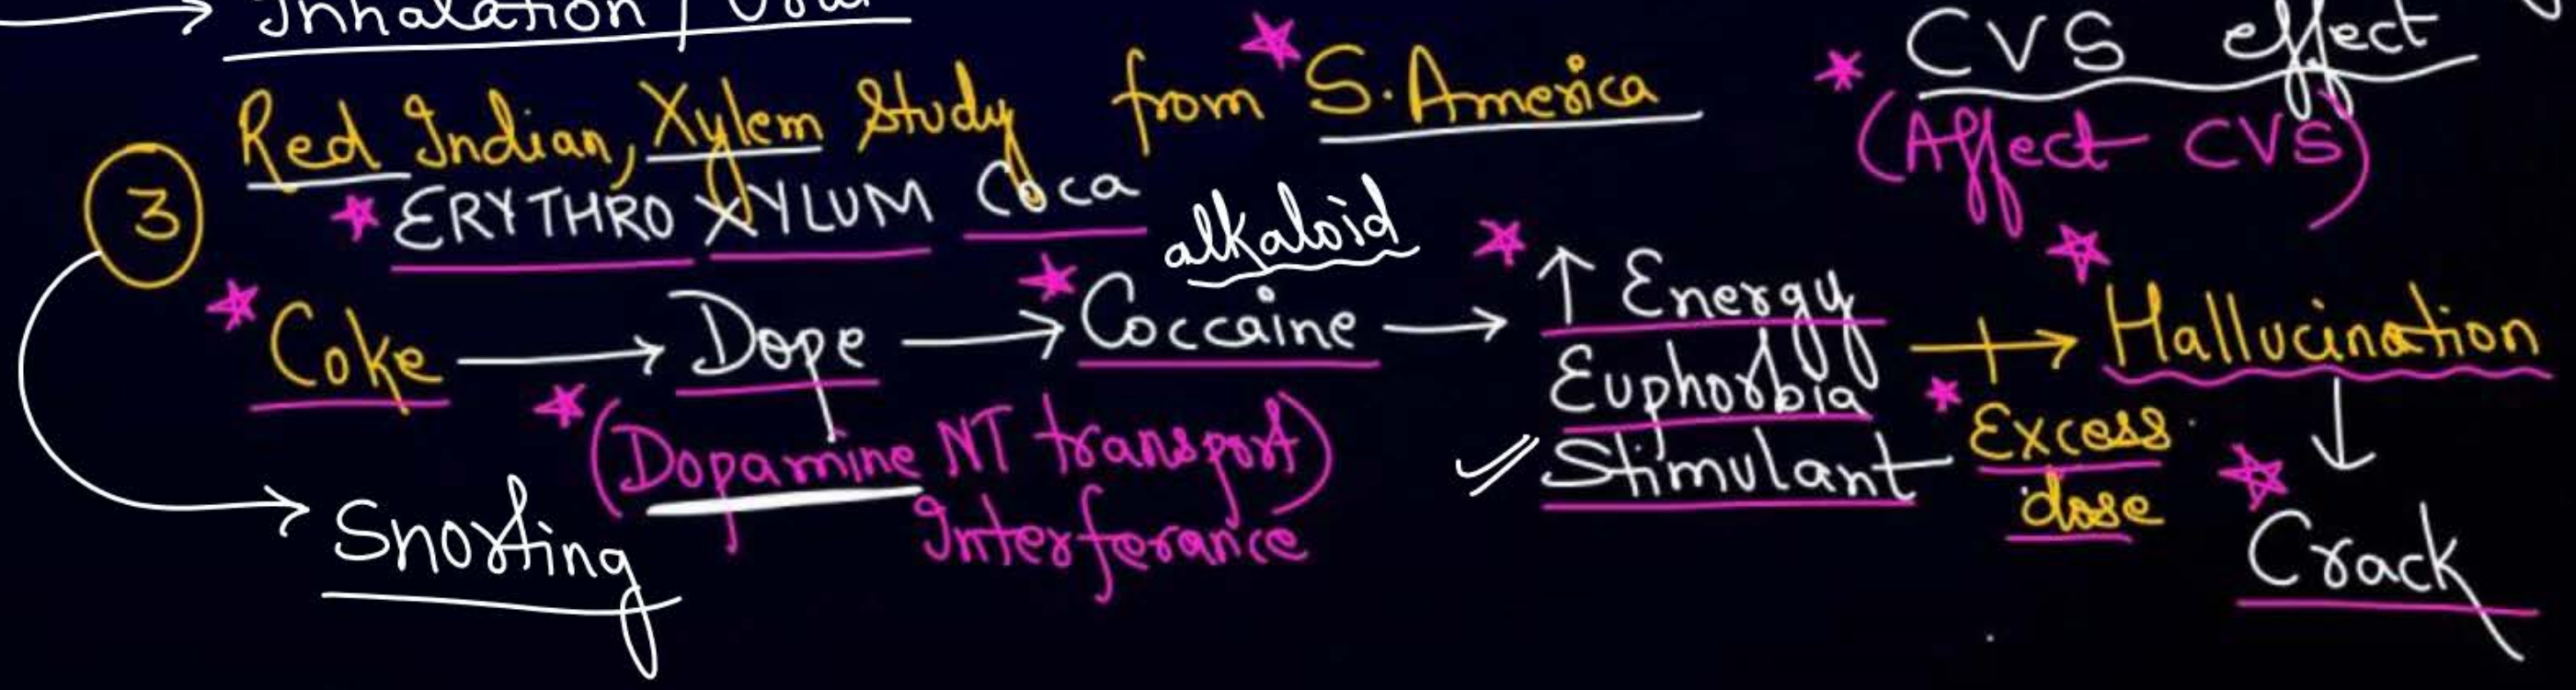 → Inhalation / Oral
CVS effect
(Affect CVS)
Red Indian, Xylem Study from S. America
③
ERYTHRO XYLUM Coca
alkaloid
Coke → Dope → Coccaine → ↑ Energy
Euphorbia
Stimulant
Excess dose
→ Hallucination
↓
Crack
(Dopamine NT transport)
Interferance
Snorting